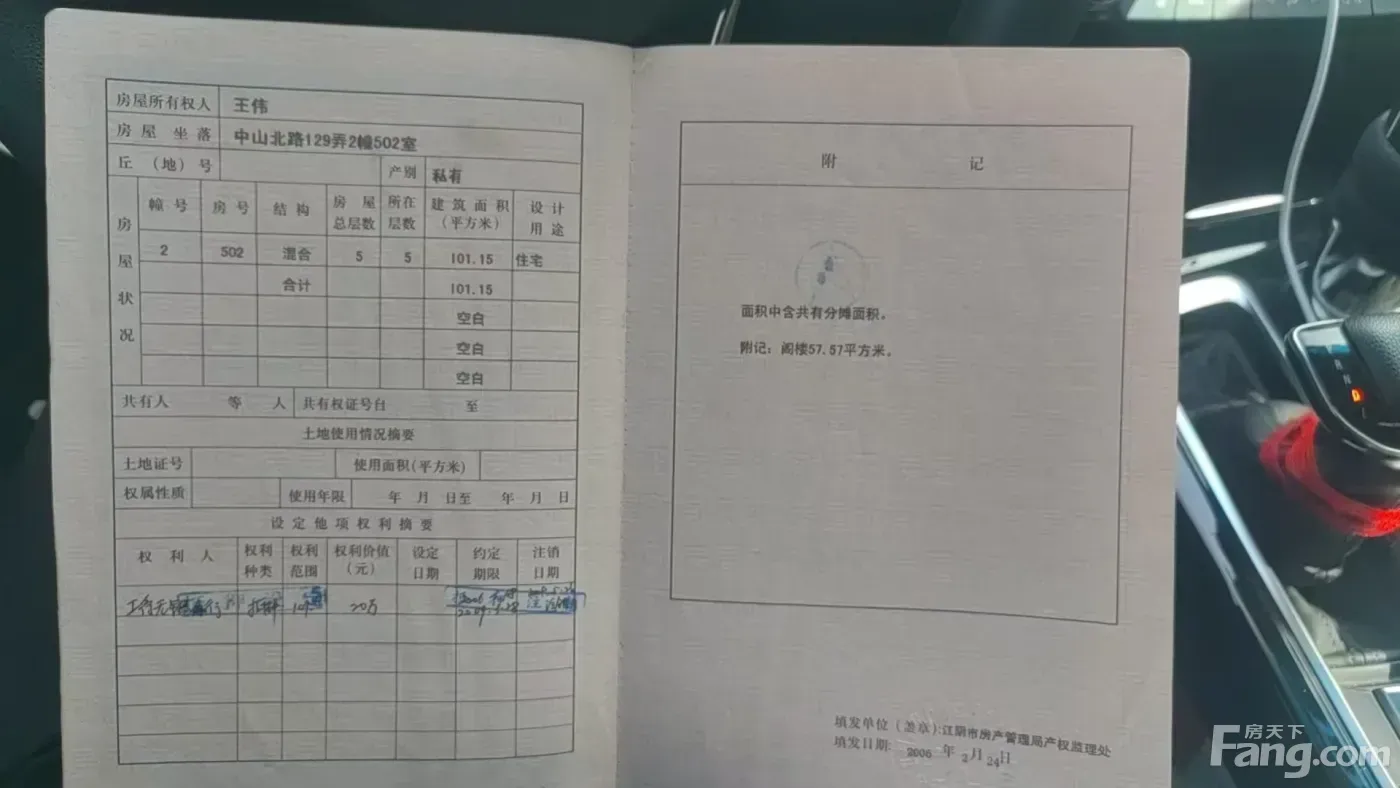 房屋所有权人 王伟
房屋坐落 中山北路129弄2幢502室
丘（地）号 产别 私有
房屋状况
幢号 房号 结构 房屋总层数 所在层数 建筑面积（平方米） 设计用途
2 502 混合 5 5 101.15 住宅
合计 101.15
空白
空白
空白
共有人 等 人 共有权证号自 至
土地使用情况摘要
土地证号 使用面积(平方米)
权属性质 使用年限 年 月 日至 年 月 日
设定他项权利摘要
权利人 权利种类 权利范围 权利价值（元） 设定日期 约定期限 注销日期
20万
附记
面积中含共有分摊面积。
附记：阁楼57.57平方米。
填发单位（盖章）:江阴市房产管理局产权监理处
填发日期: 2006 年 2月 24日
房天下
Fang.com